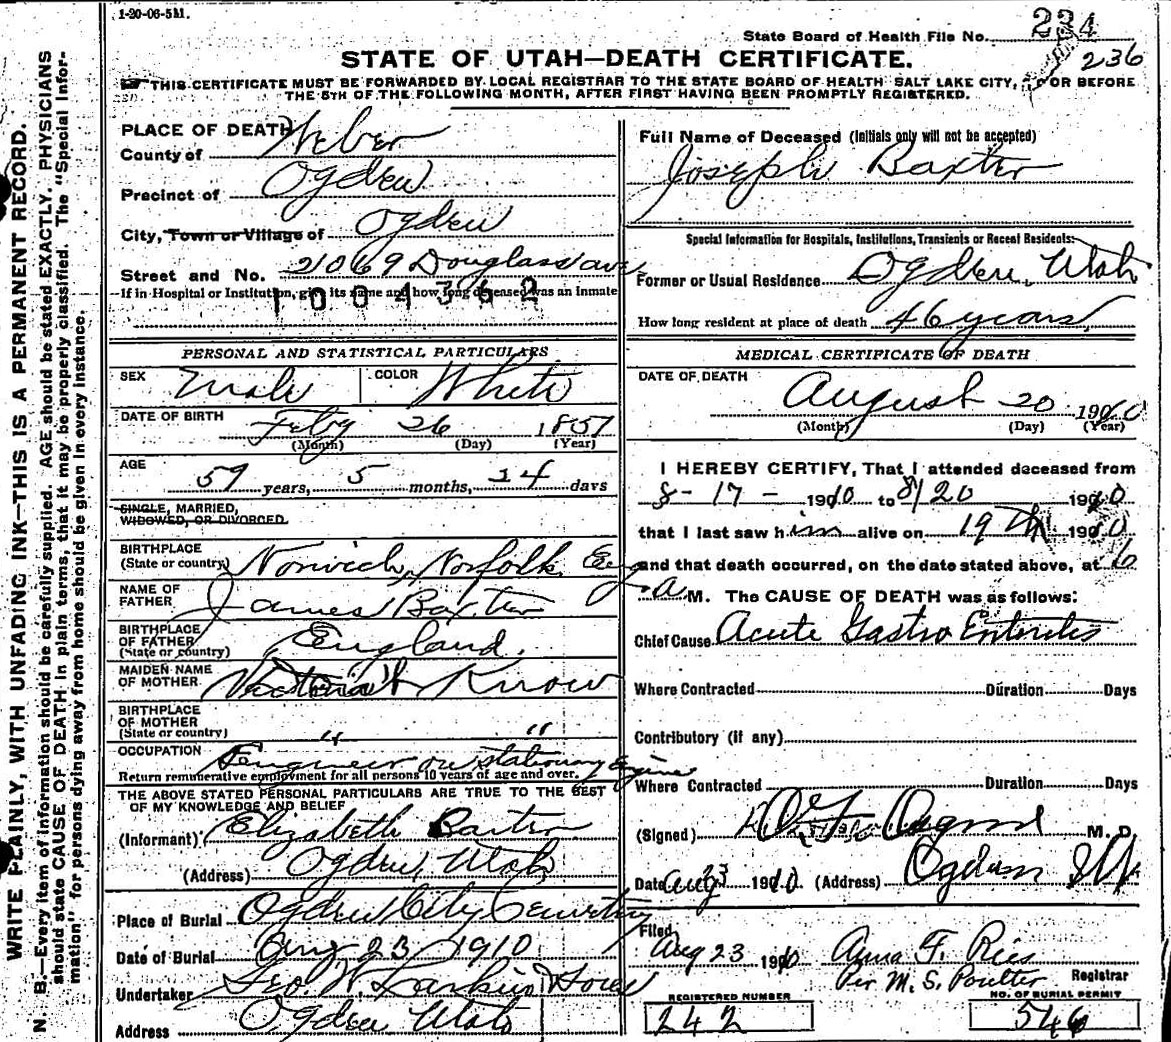 1-20-06-5M.
State Board of Health File No. 234
236
STATE OF UTAH—DEATH CERTIFICATE.
THIS CERTIFICATE MUST BE FORWARDED BY LOCAL REGISTRAR TO THE STATE BOARD OF HEALTH SALT LAKE CITY, OR BEFORE
THE 5TH OF THE FOLLOWING MONTH, AFTER FIRST HAVING BEEN PROMPTLY REGISTERED.
WRITE PLAINLY, WITH UNFADING INK—THIS IS A PERMANENT RECORD.
N. B.—Every item of information should be carefully supplied. AGE should be stated EXACTLY. PHYSICIANS
should state CAUSE OF DEATH in plain terms, that it may be properly classified. The "Special Infor-
mation" for persons dying away from home should be given in every instance.
PLACE OF DEATH
County of Weber
Precinct of Ogden
City, Town or Village of Ogden
Street and No. 2069 Douglass ave
If in Hospital or Institution, give its name and how long deceased was an inmate
1004362
PERSONAL AND STATISTICAL PARTICULARS
SEX Male COLOR White
DATE OF BIRTH Feby 26 1851
(Month) (Day) (Year)
AGE
59 years, 5 months, 24 days
SINGLE, MARRIED,
WIDOWED, OR DIVORCED
BIRTHPLACE
(State or country) Norwich, Norfolk Eng
NAME OF
FATHER James Baxter
BIRTHPLACE
OF FATHER
(State or country) England.
MAIDEN NAME
OF MOTHER Know
BIRTHPLACE
OF MOTHER
(State or country) " "
OCCUPATION Engineer on stationary Engine
Return remunerative employment for all persons 10 years of age and over.
THE ABOVE STATED PERSONAL PARTICULARS ARE TRUE TO THE BEST
OF MY KNOWLEDGE AND BELIEF
(Informant) Elizabeth Baxter
(Address) Ogden, Utah
Place of Burial Ogden City Cemetery
Date of Burial Aug 23 1910
Undertaker Geo. W. Larkin & Sons
Address Ogden Utah
Full Name of Deceased (Initials only will not be accepted)
Joseph Baxter
Special Information for Hospitals, Institutions, Transients or Recent Residents:
Former or Usual Residence Ogden, Utah
How long resident at place of death 46 years
MEDICAL CERTIFICATE OF DEATH
DATE OF DEATH
August 20 1910
(Month) (Day) (Year)
I HEREBY CERTIFY, That I attended deceased from
8-17- 1910 to 8/20 1910
that I last saw him alive on 19th 1910
and that death occurred, on the date stated above, at 6
a M. The CAUSE OF DEATH was as follows:
Chief Cause Acute Gastro Enteritis
Where Contracted Duration Days
Contributory (if any)
Where Contracted Duration Days
(Signed) M. D.
Date Aug 23 1910 (Address) Ogden
Filed
Aug 23 1910 Anna F. Ries
Per M. S. Poulter Registrar
REGISTERED NUMBER NO. OF BURIAL PERMIT
242 546